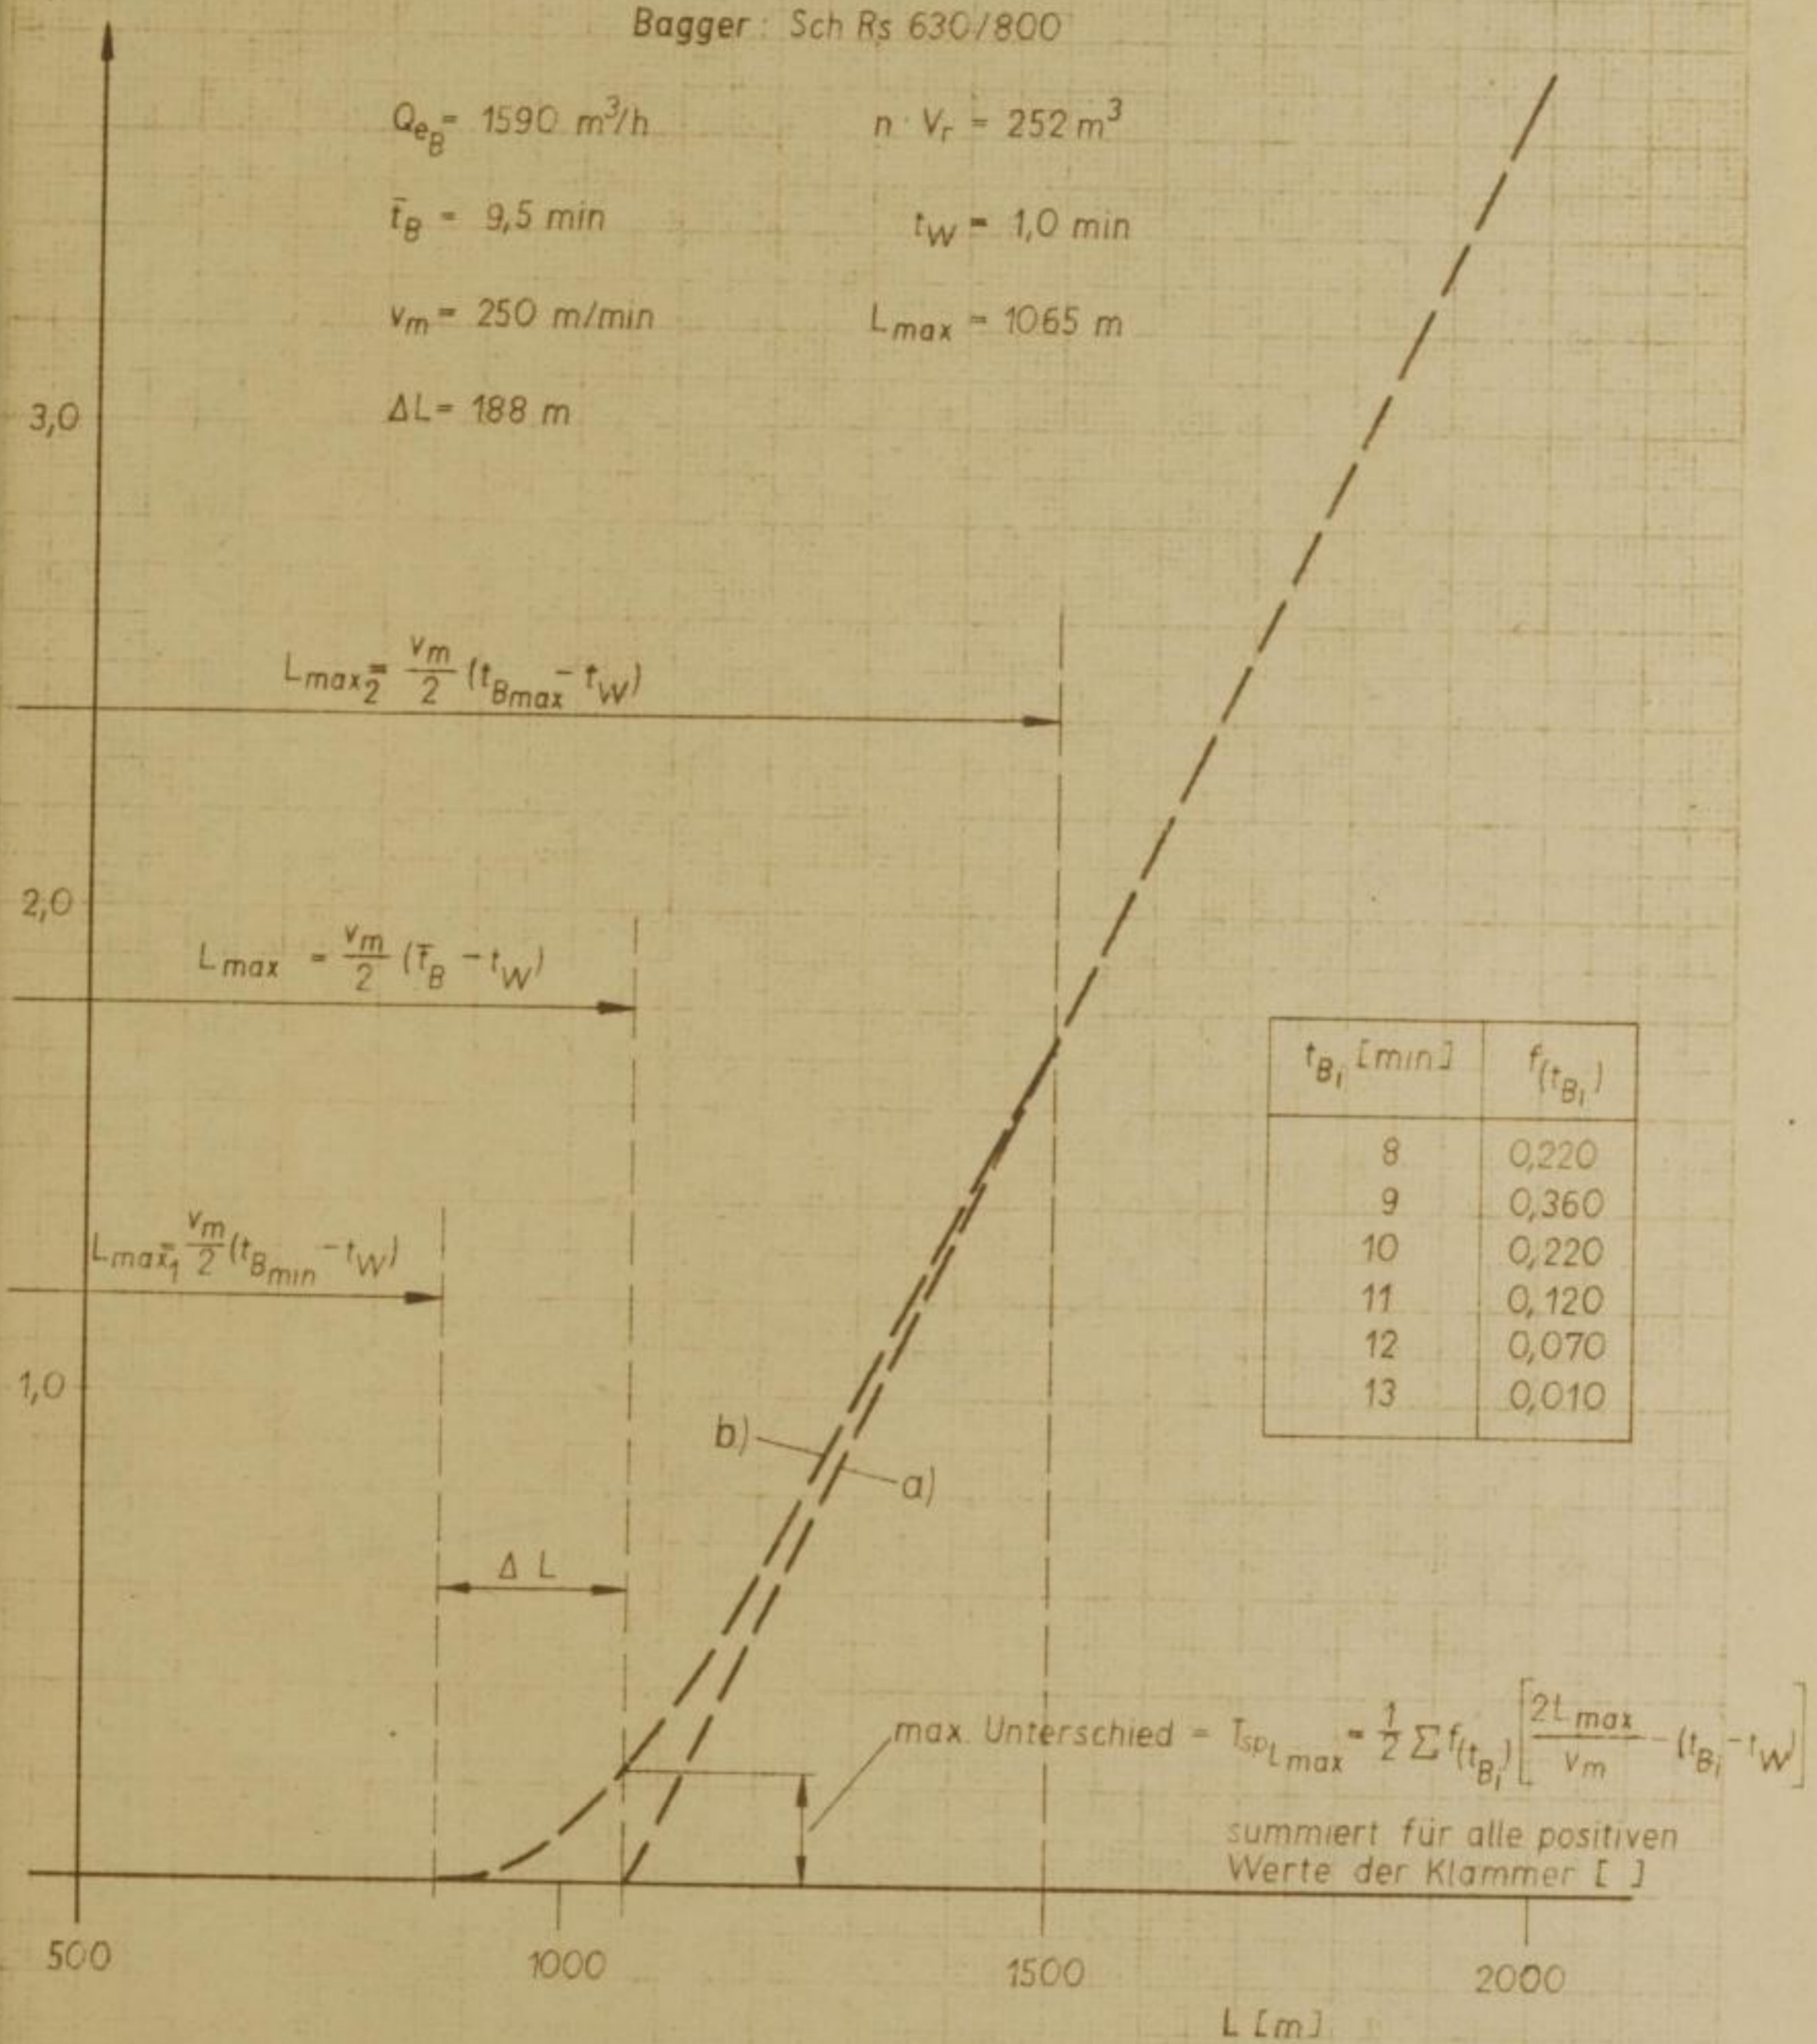 Bagger: Sch Rs 630/800
Q_eB = 1590 m³/h
n · V_r = 252 m³
t̄_B = 9,5 min
t_W = 1,0 min
v_m = 250 m/min
L_max = 1065 m
ΔL = 188 m
3,0
L_max2 = v_m/2 (t_Bmax - t_W)
2,0
L_max = v_m/2 (t̄_B - t_W)
t_Bi [min] f(t_Bi)
8 0,220
9 0,360
10 0,220
11 0,120
12 0,070
13 0,010
L_max1 = v_m/2 (t_Bmin - t_W)
1,0
b)
a)
Δ L
max. Unterschied = T_spLmax = 1/2 Σ f(t_Bi) [2L_max/v_m - (t_Bi - t_W)]
summiert für alle positiven
Werte der Klammer [ ]
500 1000 1500 2000
L [m]